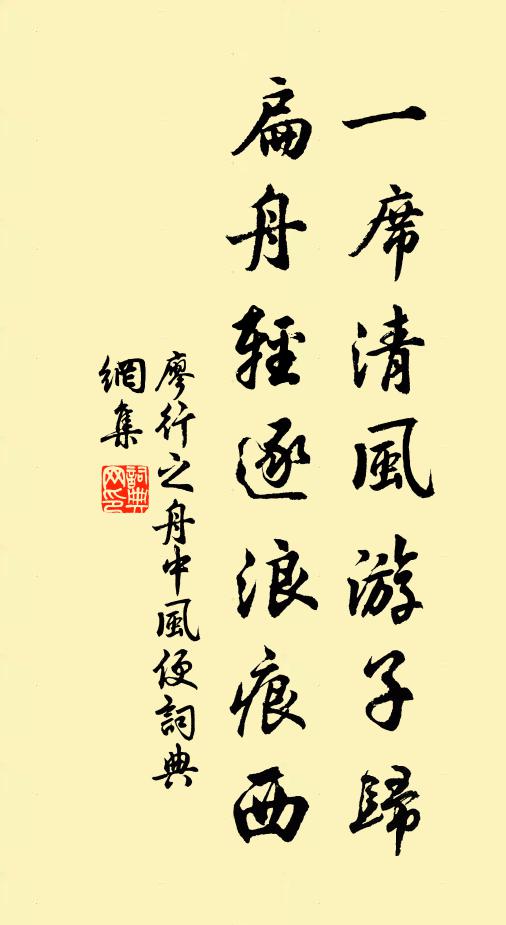 一席清風游子歸
扁舟輕逐浪痕西
廖行之舟中風便詞典
網集
詞典網印